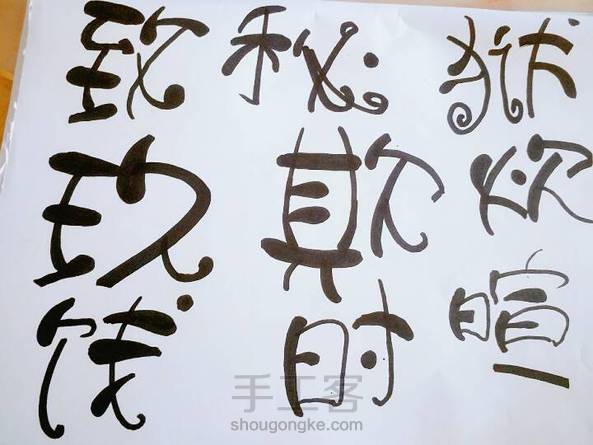 致 秘 狱
玖 欺 炊
饯 时 暄
手工客
shougongke.com